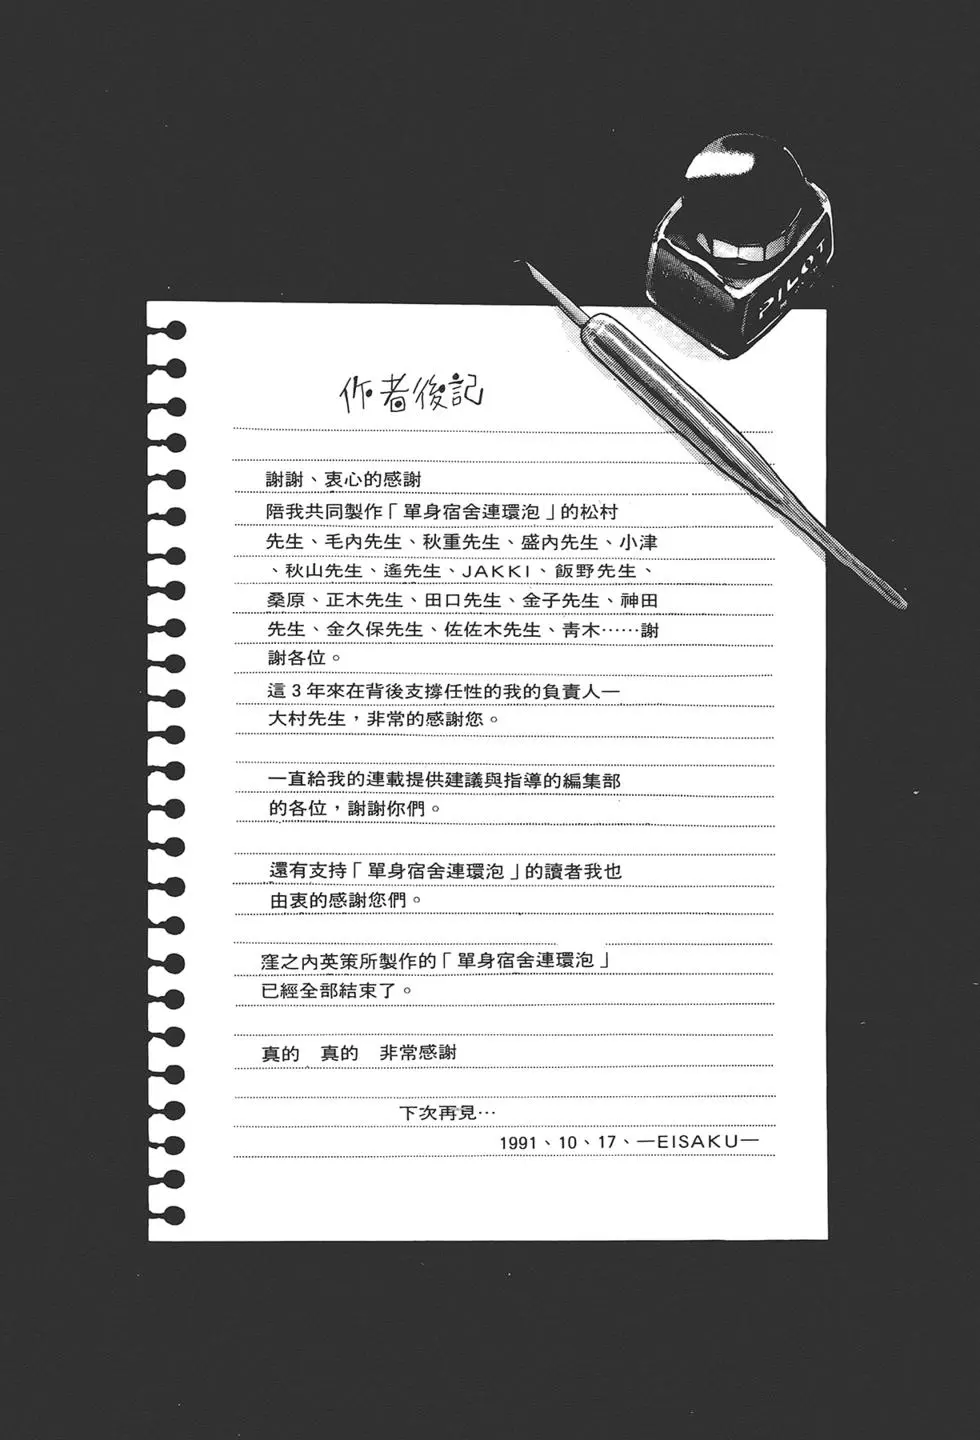 PILOT
作者後記
謝謝、衷心的感謝
陪我共同製作「單身宿舍連環泡」的松村
先生、毛內先生、秋重先生、盛內先生、小津
、秋山先生、遙先生、JAKKI、飯野先生、
桑原、正木先生、田口先生、金子先生、神田
先生、金久保先生、佐佐木先生、青木……謝
謝各位。
這3年來在背後支撐任性的我的負責人—
大村先生，非常的感謝您。
一直給我的連載提供建議與指導的編集部
的各位，謝謝你們。
還有支持「單身宿舍連環泡」的讀者我也
由衷的感謝您們。
窪之內英策所製作的「單身宿舍連環泡」
已經全部結束了。
真的　真的　非常感謝
下次再見…
1991、10、17、—EISAKU—